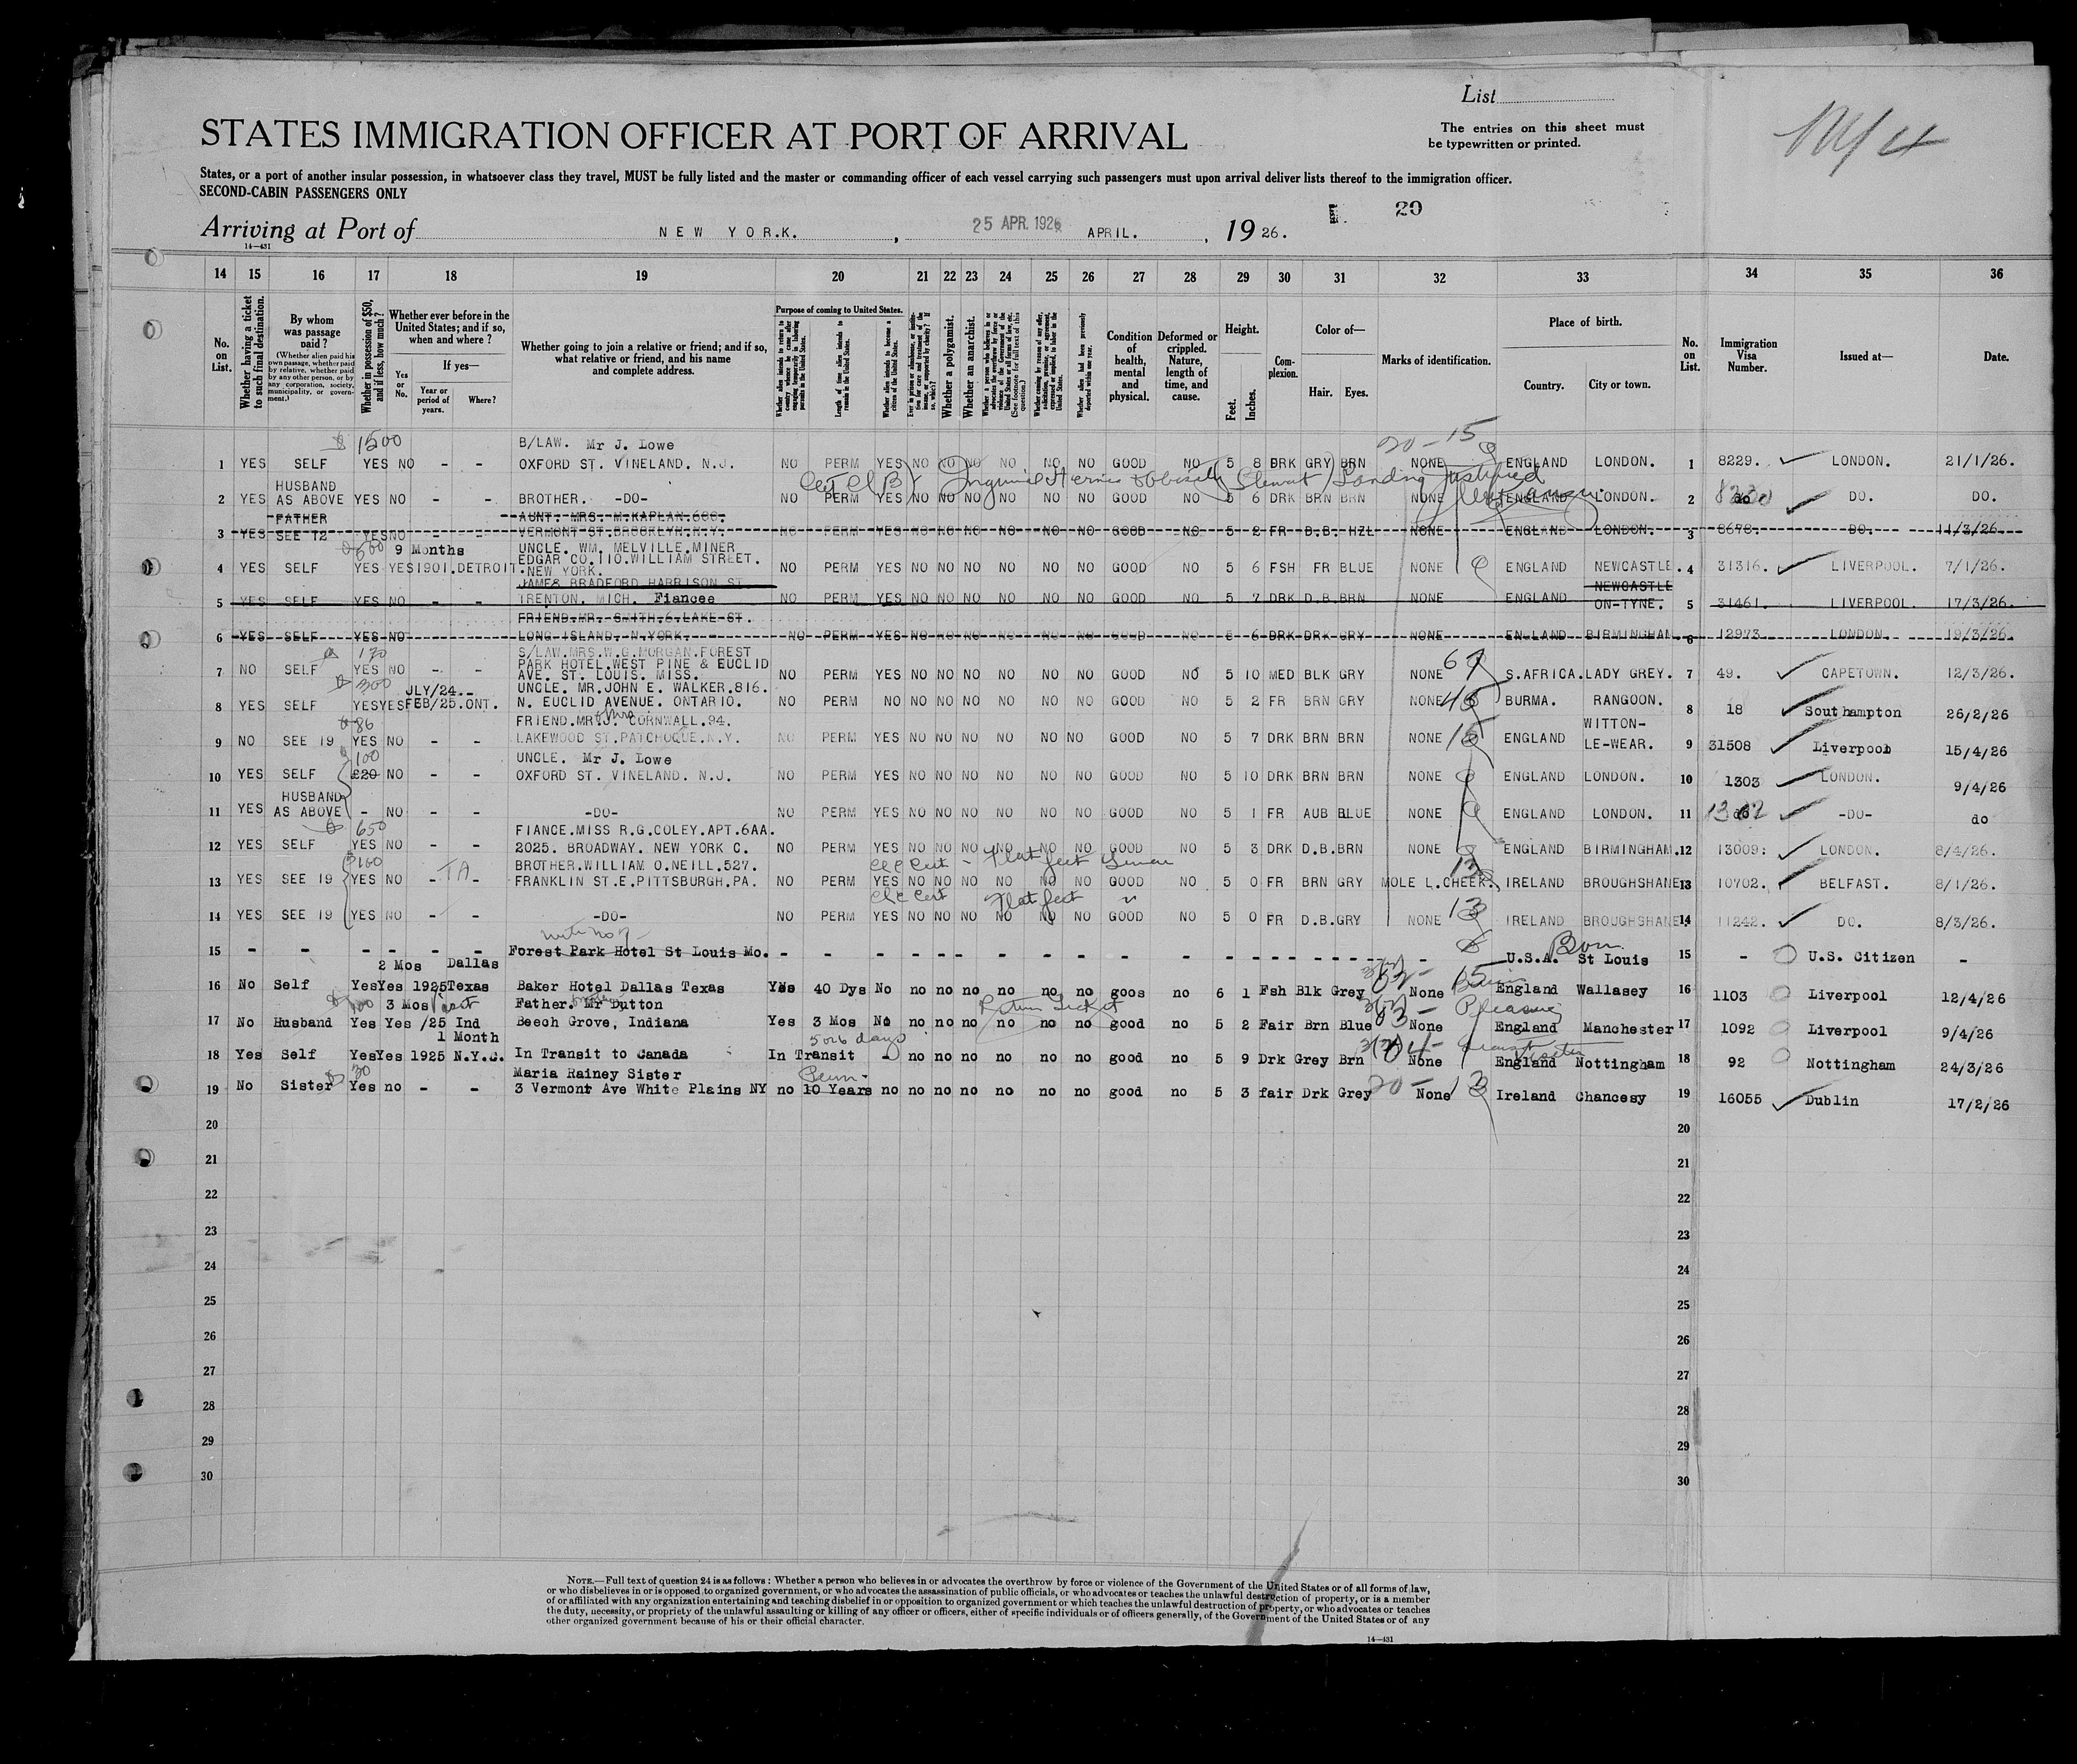 List
STATES IMMIGRATION OFFICER AT PORT OF ARRIVAL
The entries on this sheet must
be typewritten or printed.
States, or a port of another insular possession, in whatsoever class they travel, MUST be fully listed and the master or commanding officer of each vessel carrying such passengers must upon arrival deliver lists thereof to the immigration officer.
SECOND-CABIN PASSENGERS ONLY
20
Arriving at Port of NEW YORK. , 25 APR. 1926 APRIL. , 1926.
14—431
14 15 16 17 18 19 20 21 22 23 24 25 26 27 28 29 30 31 32 33 34 35 36
No. on List.
Whether having a ticket to such final destination.
By whom was passage paid?
(Whether alien paid his own passage, whether paid by relative, whether paid by any other person, or by any corporation, society, municipality, or government.)
Whether in possession of $50, and if less, how much?
Whether ever before in the United States; and if so, when and where?
If yes—
Yes or No.
Year or period of years.
Where?
Whether going to join a relative or friend; and if so, what relative or friend, and his name and complete address.
Purpose of coming to United States.
Length of time alien intends to remain in the United States.
Whether alien intends to become a citizen of the United States.
Whether a polygamist.
Whether an anarchist.
Condition of health, mental and physical.
Deformed or crippled. Nature, length of time, and cause.
Height.
Feet. Inches.
Complexion.
Color of—
Hair. Eyes.
Marks of identification.
Place of birth.
Country. City or town.
No. on List.
Immigration Visa Number.
Issued at—
Date.
1500 B/LAW. Mr J. Lowe 20-15
1 YES SELF YES NO - - OXFORD ST. VINELAND. N.J. NO PERM YES NO NO NO NO NO NO GOOD NO 5 8 DRK GRY BRN NONE ENGLAND LONDON. 1 8229. LONDON. 21/1/26.
HUSBAND
Inguinal Hernia & Obesity Landing Justified
2 YES AS ABOVE YES NO - - BROTHER. -DO- NO PERM YES NO NO NO NO NO NO GOOD NO 5 6 DRK BRN BRN NONE ENGLAND LONDON. 2 8230 DO. DO.
FATHER AUNT. MRS. M.KAPLAN.680.
3 YES SEE 12 YES NO - - VERMONT ST.BROOKLYN.N.Y. NO PERM YES NO NO NO NO NO NO GOOD NO 5 2 FR D.B. HZL NONE ENGLAND LONDON. 3 8678. DO. 11/3/26.
500 9 Months UNCLE. WM. MELVILLE.MINER
EDGAR CO.110.WILLIAM STREET.
4 YES SELF YES YES 1901.DETROIT. NEW YORK. NO PERM YES NO NO NO NO NO NO GOOD NO 5 6 FSH FR BLUE NONE ENGLAND NEWCASTLE. 4 31316. LIVERPOOL. 7/1/26.
JAMES BRADFORD HARRISON ST NEWCASTLE
5 YES SELF YES NO - - TRENTON. MICH. Fiancee NO PERM YES NO NO NO NO NO NO GOOD NO 5 7 DRK D.B. BRN NONE ENGLAND ON-TYNE. 5 31461. LIVERPOOL. 17/3/26.
FRIEND.MR. SMITH.6.LAKE ST.
6 YES SELF YES NO - - LONG ISLAND. N.YORK. NO PERM YES NO NO NO NO NO NO GOOD NO 5 6 DRK DRK GRY NONE ENGLAND BIRMINGHAM. 6 12973 LONDON. 19/3/26.
S/LAW.MRS.W.G.MORGAN.FOREST
PARK HOTEL.WEST PINE & EUCLID
7 NO SELF YES NO - - AVE. ST. LOUIS. MISS. NO PERM YES NO NO NO NO NO NO GOOD NO 5 10 MED BLK GRY NONE S.AFRICA. LADY GREY. 7 49. CAPETOWN. 12/3/26.
300 JLY/24.- UNCLE. MR.JOHN E. WALKER.816.
8 YES SELF YES YES FEB/25.ONT. N. EUCLID AVENUE. ONTARIO. NO PERM NO NO NO NO NO NO NO GOOD NO 5 2 FR BRN GRY NONE BURMA. RANGOON. 8 18 Southampton 26/2/26
86 FRIEND.MR.J. CORNWALL.94. WITTON-
9 NO SEE 19 YES NO - - LAKEWOOD ST.PATCHOQUE.N.Y. NO PERM YES NO NO NO NO NO NO GOOD NO 5 7 DRK BRN BRN NONE 15 ENGLAND LE-WEAR. 9 31508 Liverpool 15/4/26
100 UNCLE. Mr J. Lowe
10 YES SELF £20 NO - - OXFORD ST. VINELAND. N.J. NO PERM YES NO NO NO NO NO NO GOOD NO 5 10 DRK BRN BRN NONE ENGLAND LONDON. 10 1303 LONDON. 9/4/26
HUSBAND
11 YES AS ABOVE - NO - - -DO- NO PERM YES NO NO NO NO NO NO GOOD NO 5 1 FR AUB BLUE NONE ENGLAND LONDON. 11 1302 -DO- do
650 FIANCE.MISS R.G.COLEY.APT.6AA.
12 YES SELF YES NO - - 2025. BROADWAY. NEW YORK C. NO PERM YES NO NO NO NO NO NO GOOD NO 5 3 DRK D.B. BRN NONE ENGLAND BIRMINGHAM. 12 13009: LONDON. 8/4/26.
160 BROTHER.WILLIAM O.NEILL.527. Cert - Flat feet
13 YES SEE 19 YES NO - TA - FRANKLIN ST.E.PITTSBURGH.PA. NO PERM YES NO NO NO NO NO NO GOOD NO 5 0 FR BRN GRY MOLE L.CHEEK. IRELAND BROUGHSHANE 13 10702. BELFAST. 8/1/26.
Cert Flat feet "
14 YES SEE 19 YES NO - - -DO- NO PERM YES NO NO NO NO NO NO GOOD NO 5 0 FR D.B. GRY NONE 13 IRELAND BROUGHSHANE 14 11242. DO. 8/3/26.
15 - - - - - - Forest Park Hotel St Louis Mo. - - - - - - - - - - - - - - - - - U.S.A. Born St Louis 15 - U.S. Citizen -
2 Mos Dallas
16 No Self Yes Yes 1925 Texas Baker Hotel Dallas Texas Yes 40 Dys No no no no no no no goos no 6 1 Fsh Blk Grey None England Wallasey 16 1103 Liverpool 12/4/26
3 Mos Father. Mr Dutton Return Ticket
17 No Husband Yes Yes /25 Ind Beech Grove, Indiana Yes 3 Mos No no no no no no no good no 5 2 Fair Brn Blue None England Manchester 17 1092 Liverpool 9/4/26
1 Month 5 or 6 days
18 Yes Self Yes Yes 1925 N.Y.C. In Transit to Canada In Transit - no no no no no no good no 5 9 Drk Grey Brn None England Nottingham 18 92 Nottingham 24/3/26
30 Maria Rainey Sister Perm.
19 No Sister Yes no - - 3 Vermont Ave White Plains NY no 10 Years no no no no no no no good no 5 3 fair Drk Grey 20- None 13 Ireland Chancesy 19 16055 Dublin 17/2/26
20 20
21 21
22 22
23 23
24 24
25 25
26 26
27 27
28 28
29 29
30 30
NOTE.—Full text of question 24 is as follows: Whether a person who believes in or advocates the overthrow by force or violence of the Government of the United States or of all forms of law,
or who disbelieves in or is opposed to organized government, or who advocates the assassination of public officials, or who advocates or teaches the unlawful destruction of property, or is a member
of or affiliated with any organization entertaining and teaching disbelief in or opposition to organized government or which teaches the unlawful destruction of property, or who advocates or teaches
the duty, necessity, or propriety of the unlawful assaulting or killing of any officer or officers, either of specific individuals or of officers generally, of the Government of the United States or of any
other organized government because of his or their official character.
14—431